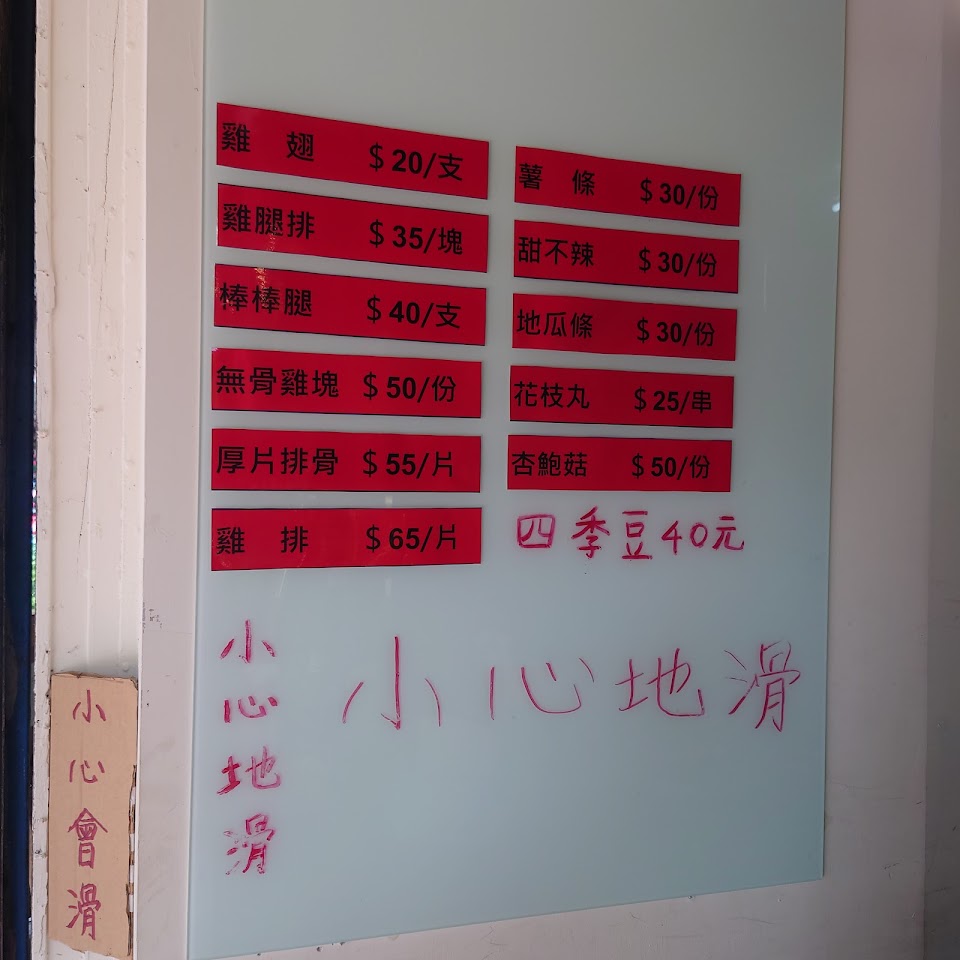 雞 翅 $20/支
雞腿排 $35/塊
棒棒腿 $40/支
無骨雞塊 $50/份
厚片排骨 $55/片
雞 排 $65/片
薯 條 $30/份
甜不辣 $30/份
地瓜條 $30/份
花枝丸 $25/串
杏鮑菇 $50/份
四季豆40元
小心地滑
小心地滑
小心會滑